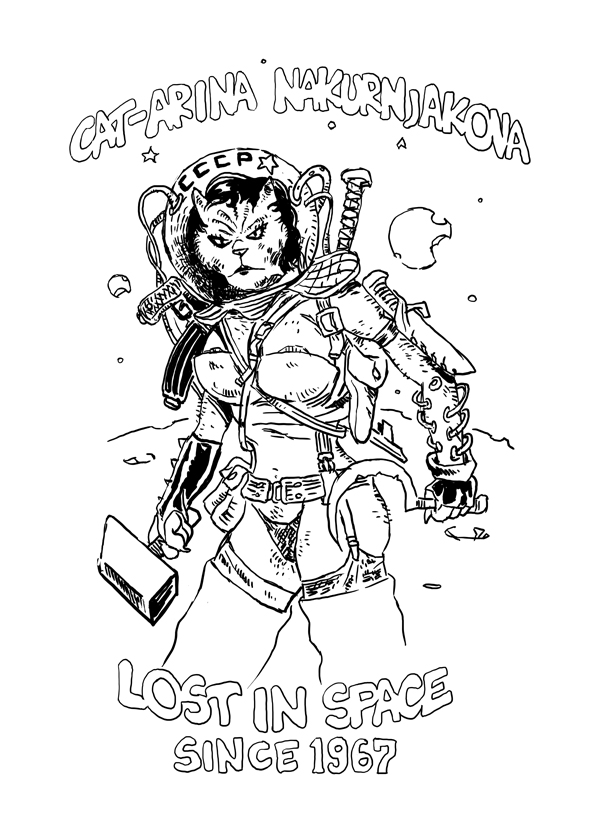 CAT-ARINA NAKURNJAKOVA
CCCP
LOST IN SPACE
SINCE 1967